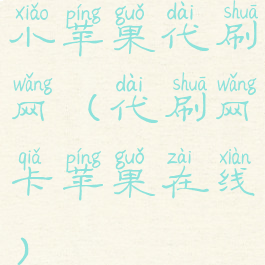 xiǎo píng guǒ dài shuā
小苹果代刷
wǎng dài shuā wǎng
网(代刷网
qiǎ píng guǒ zài xiàn
卡苹果在线
)